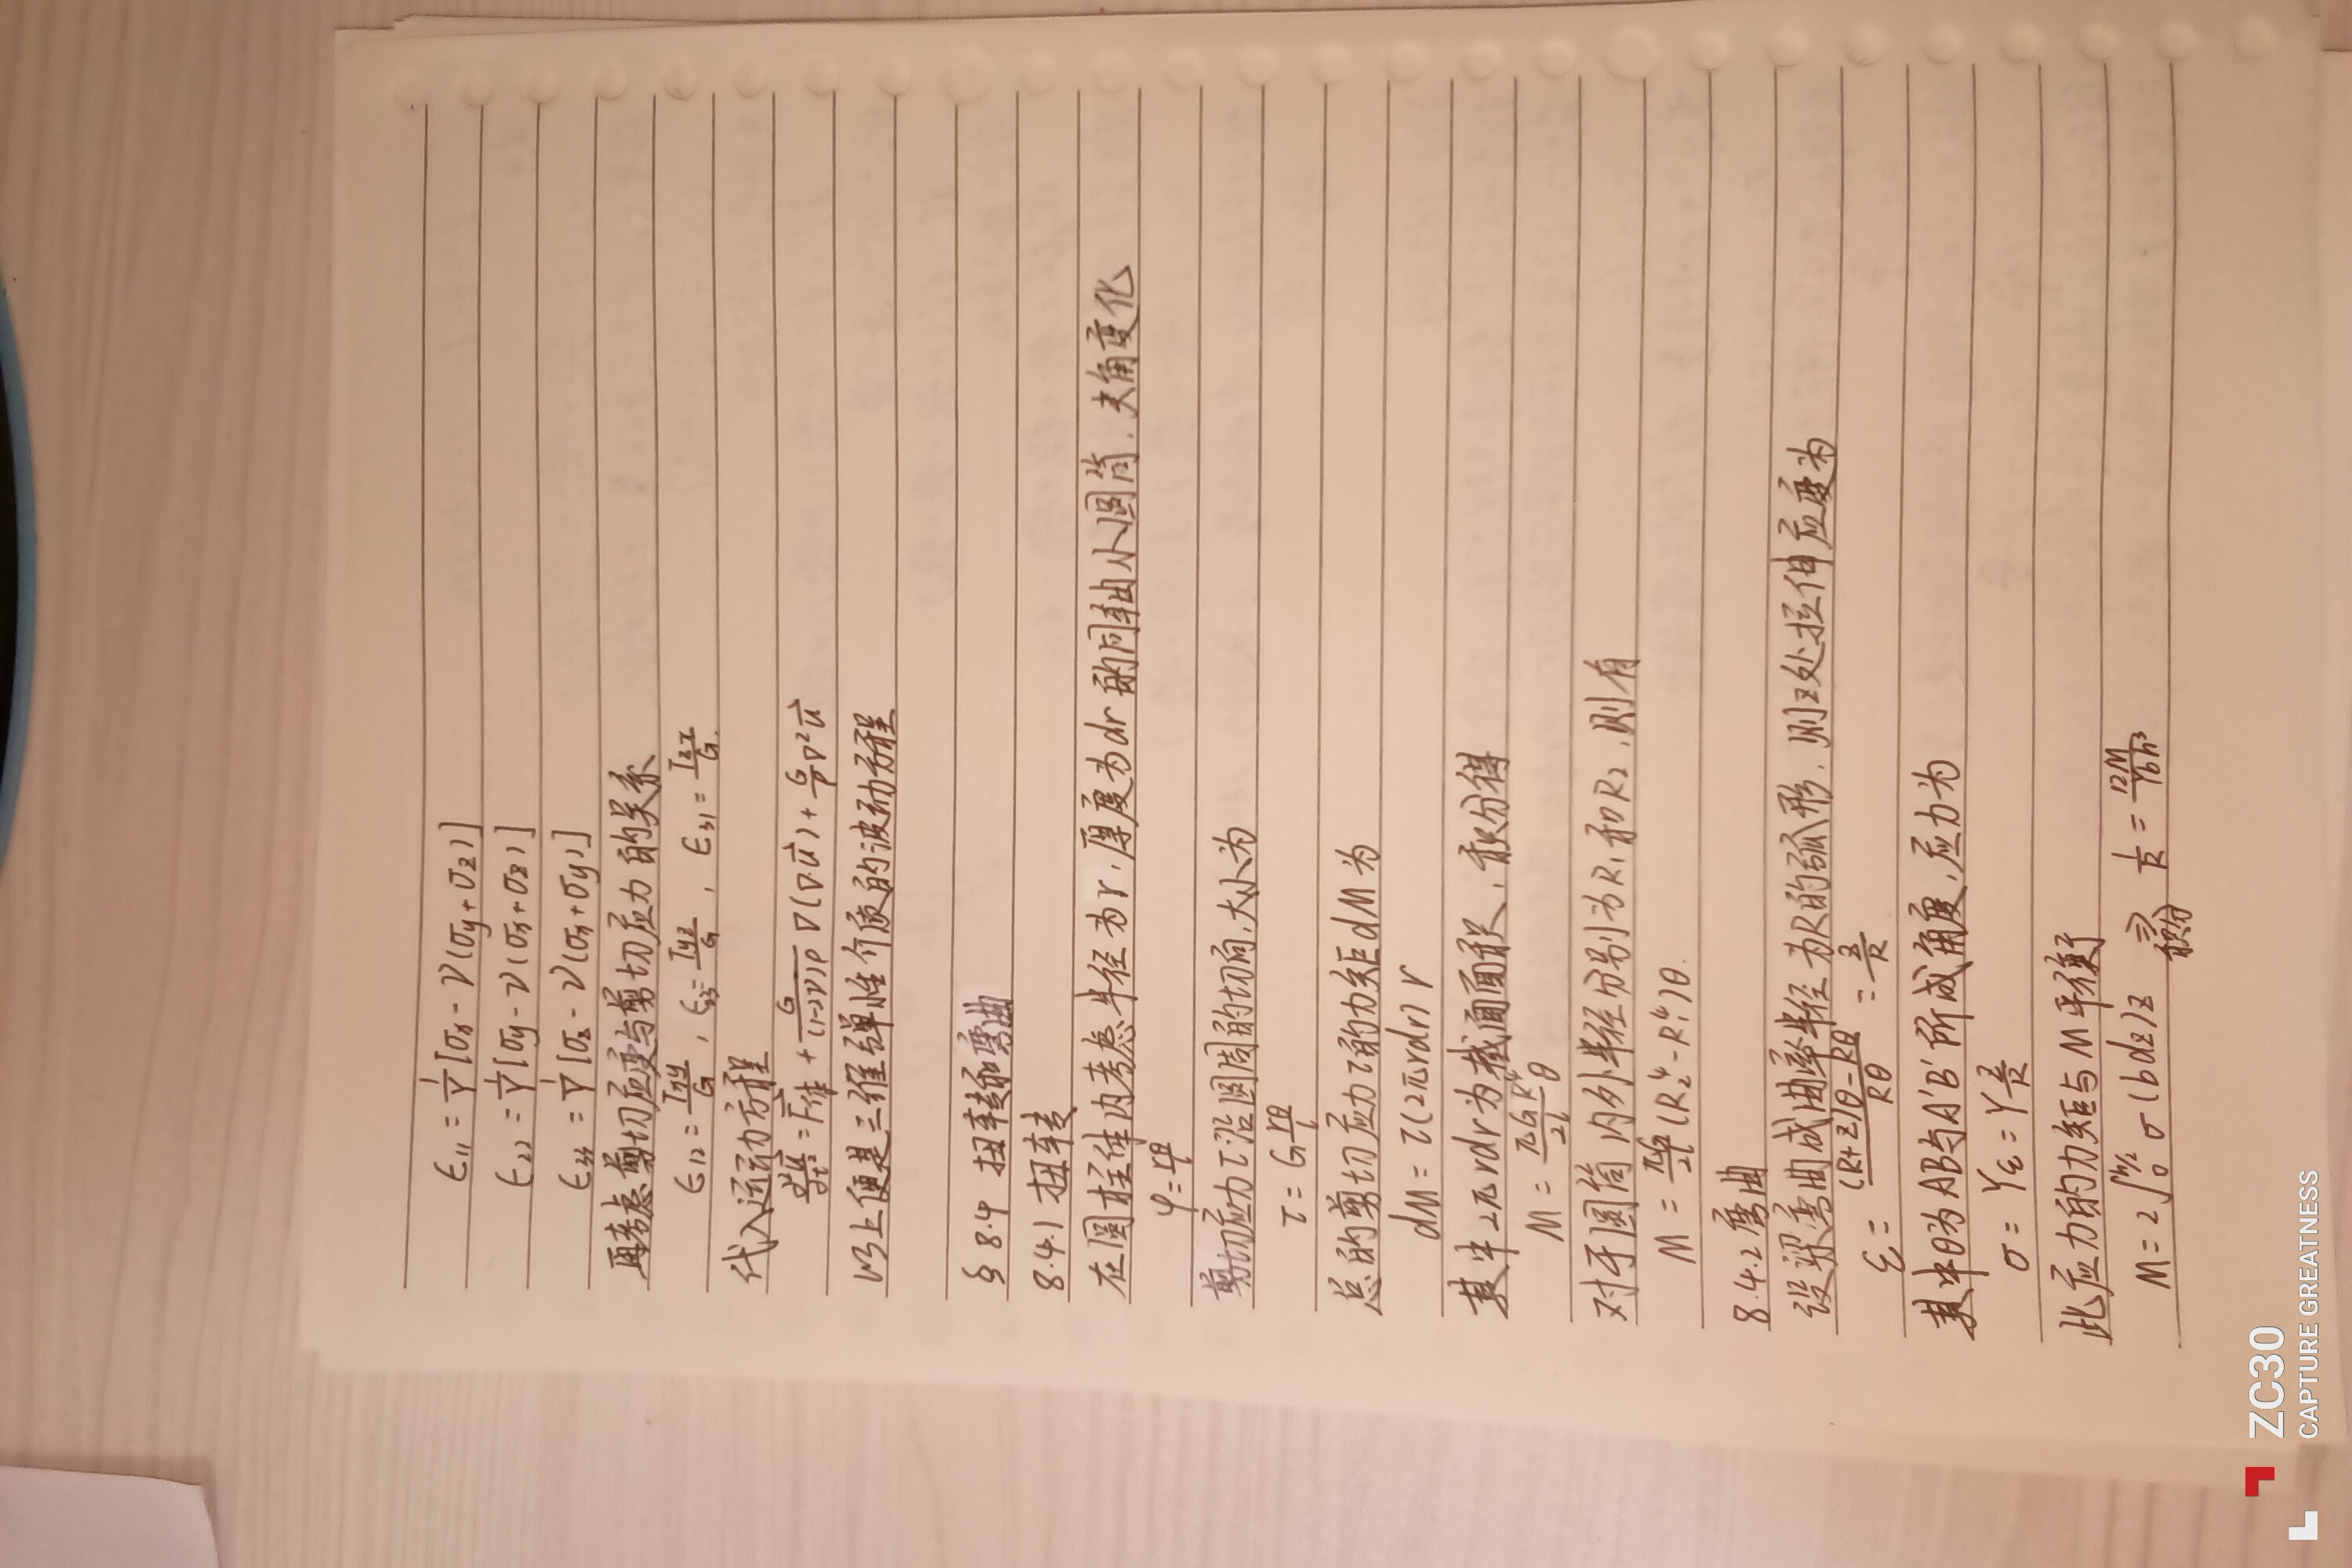 ε₁₁ = 1/Y [σx - ν(σy+σz)]
ε₂₂ = 1/Y [σy - ν(σx+σz)]
ε₃₃ = 1/Y [σz - ν(σx+σy)]
再考虑剪切应变与剪切应力的关系
ε₁₂ = τxy/G , ε₂₃ = τyz/G , ε₃₁ = τzx/G
代入运动方程
∂²u⃗/∂t² = F⃗体 + G/((1-2ν)ρ) ∇(∇·u⃗) + G/ρ ∇²u⃗
以上便是三维弹性介质的波动方程
§ 8.4 扭转和弯曲
8.4.1 扭转
在圆柱体内考虑半径为r,厚度为dr的同轴小圆筒,夹角变化
φ = rθ/l
剪切应力τ沿圆周的切向,大小为
τ = G rθ/l
总的剪切应力τ的力矩dM为
dM = τ(2πrdr) r
其中2πrdr为截面面积,积分得
M = πGR⁴/2l θ
对于圆筒内外半径分别为R₁和R₂,则有
M = πG/2l (R₂⁴-R₁⁴)θ.
8.4.2 弯曲
设梁弯曲成曲率半径为R的弧形,则z处拉伸应变为
ε = ((R+z)θ-Rθ)/Rθ = z/R
其中θ为AB与A'B'所成角度,应力为
σ = Yε = Y z/R
此应力的力矩与M平衡
M = 2∫₀^(h/2) σ(bdz)z ⇒ 积分 1/R = 12M/Ybh³
ZC30
CAPTURE GREATNESS